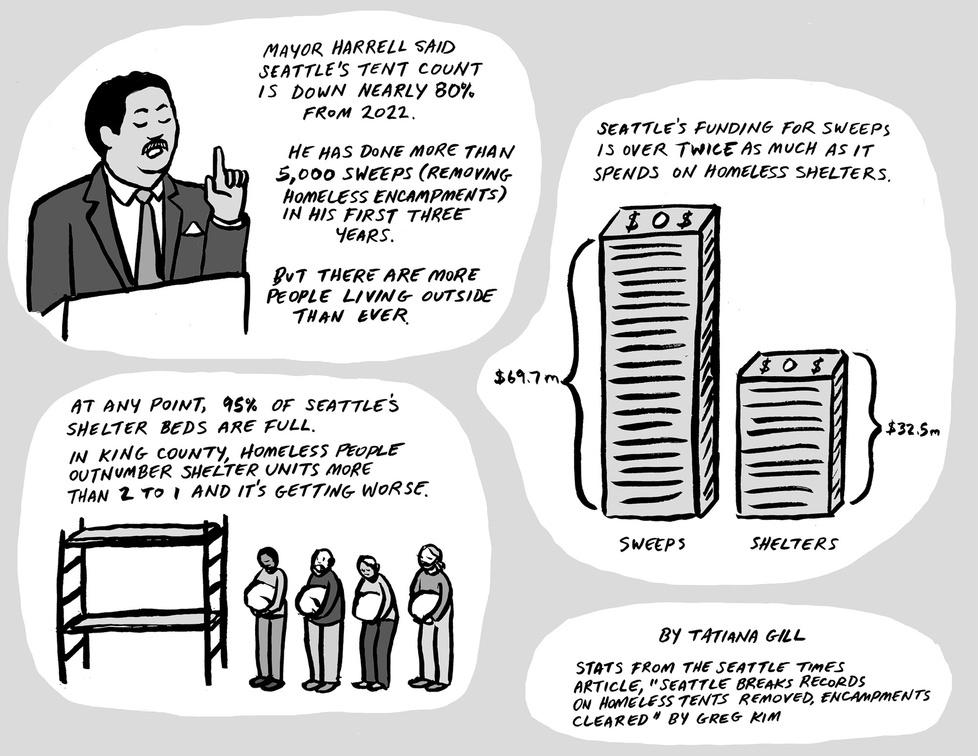 MAYOR HARRELL SAID
SEATTLE'S TENT COUNT
IS DOWN NEARLY 80%
FROM 2022.
HE HAS DONE MORE THAN
5,000 SWEEPS (REMOVING
HOMELESS ENCAMPMENTS)
IN HIS FIRST THREE
YEARS.
BUT THERE ARE MORE
PEOPLE LIVING OUTSIDE
THAN EVER.
SEATTLE'S FUNDING FOR SWEEPS
IS OVER TWICE AS MUCH AS IT
SPENDS ON HOMELESS SHELTERS.
$ O $
$ O $
$69.7m
$32.5m
SWEEPS
SHELTERS
AT ANY POINT, 95% OF SEATTLE'S
SHELTER BEDS ARE FULL.
IN KING COUNTY, HOMELESS PEOPLE
OUTNUMBER SHELTER UNITS MORE
THAN 2 TO 1 AND IT'S GETTING WORSE.
BY TATIANA GILL
STATS FROM THE SEATTLE TIMES
ARTICLE, "SEATTLE BREAKS RECORDS
ON HOMELESS TENTS REMOVED, ENCAMPMENTS
CLEARED" BY GREG KIM